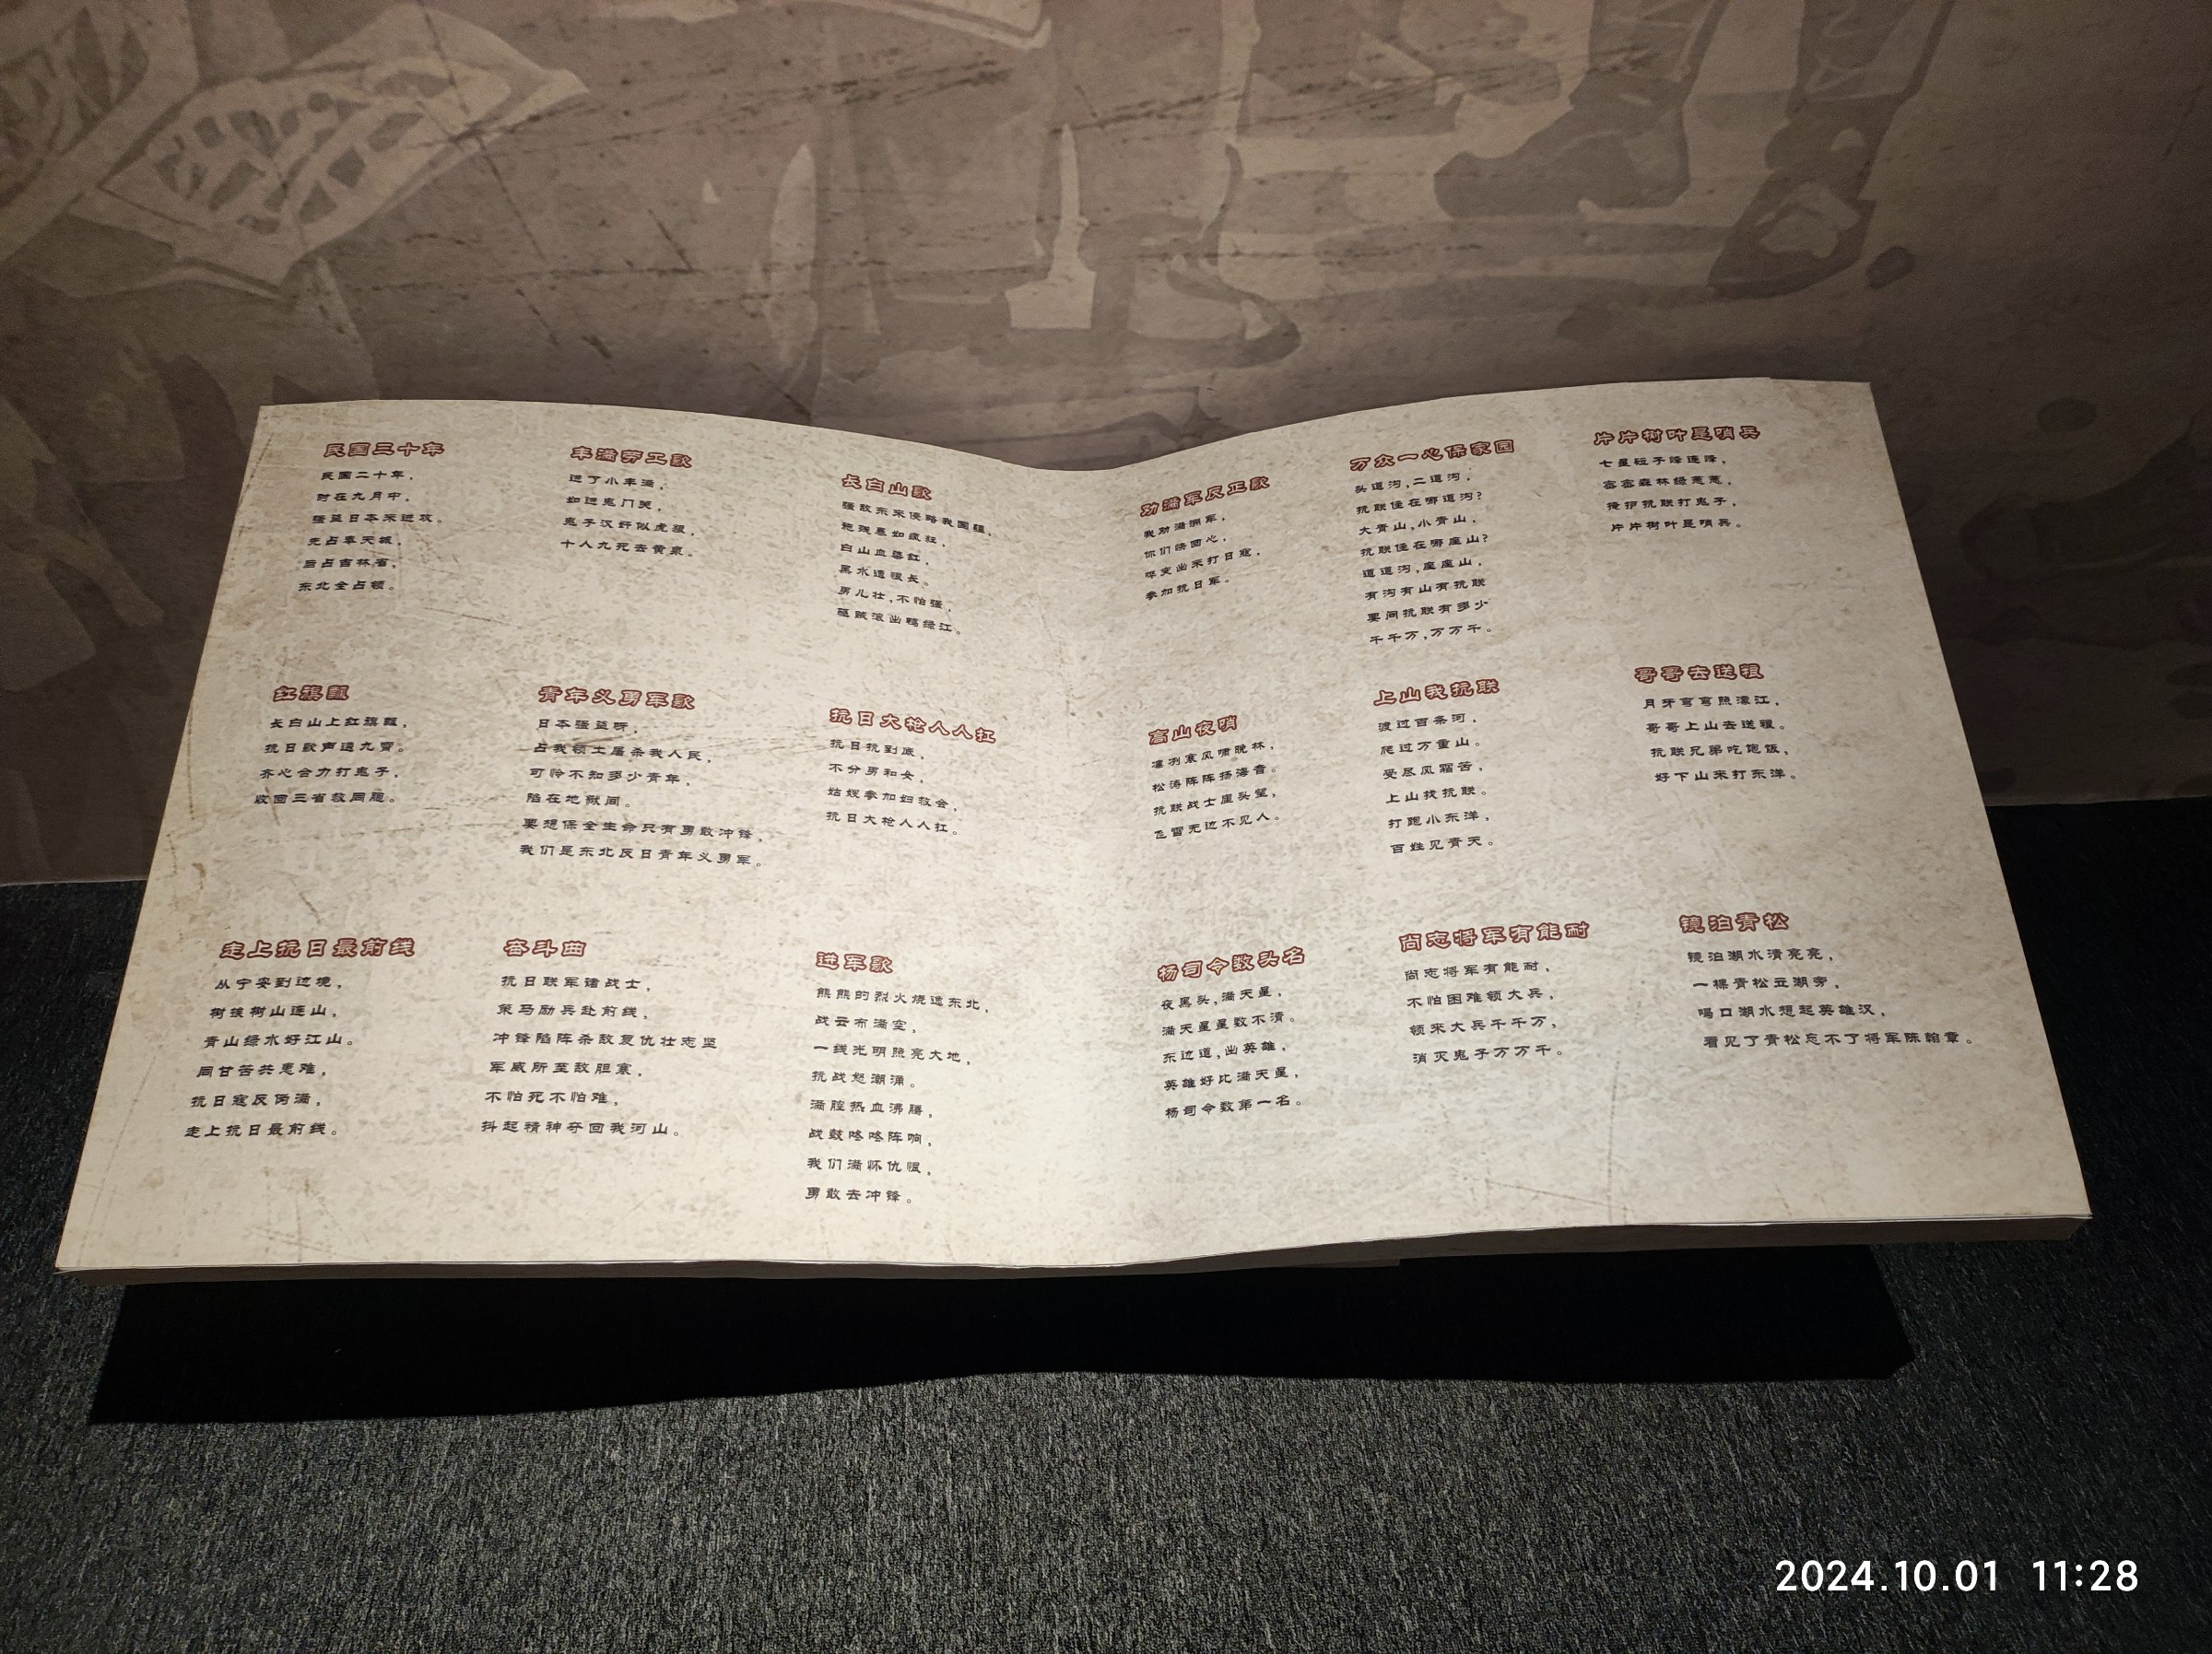 民国二十年
民国二十年，
时在九月中，
强盗日本来进攻。
先占奉天城，
后占吉林省，
东北全占领。
丰满劳工歌
进了小丰满，
如进鬼门关，
鬼子汉奸似虎狼，
十人九死去黄泉。
长白山歌
强敌东来侵略我国疆，
白山血染红，
黑水遗恨长。
男儿壮，不怕强，
驱贼滚出鸭绿江。
红旗飘
长白山上红旗飘，
抗日歌声遏九霄。
齐心合力打鬼子，
收回三省救同胞。
青年义勇军歌
日本强盗呀，
占我领土屠杀我人民，
可怜不知多少青年，
陷在地狱间。
要想保全生命只有勇敢冲锋，
我们是东北反日青年义勇军。
抗日大枪人人扛
抗日抗到底，
不分男和女，
姑嫂参加妇救会，
抗日大枪人人扛。
走上抗日最前线
从宁安到边境，
树挨树山连山，
青山绿水好江山。
同甘苦共患难，
抗日寇反伪满，
走上抗日最前线。
奋斗曲
抗日联军诸战士，
策马励兵赴前线，
冲锋陷阵杀敌复仇壮志坚
军威所至敌胆寒，
不怕死不怕难，
抖起精神夺回我河山。
进军歌
熊熊的烈火烧遍东北，
战云布满空，
一线光明照亮大地，
抗战怒潮涌。
满腔热血沸腾，
战鼓咚咚阵响，
我们满怀仇恨，
勇敢去冲锋。
劝满军反正歌
我劝满洲军，
你们快回心，
哗变出来打日寇，
参加抗日军。
万众一心保家园
头道沟，二道沟，
抗联住在哪道沟？
大青山，小青山，
抗联住在哪座山？
道道沟，座座山，
有沟有山有抗联
要问抗联有多少
千千万，万万千。
片片树叶是哨兵
七星砬子峰连峰，
密密森林绿葱葱，
掩护抗联打鬼子，
片片树叶是哨兵。
高山夜哨
凛冽寒风啸晚林，
松涛阵阵扬海音。
抗联战士崖头望，
飞雪无边不见人。
上山找抗联
渡过百条河，
爬过万重山。
受尽风霜苦，
上山找抗联。
打跑小东洋，
百姓见青天。
哥哥去送粮
月牙弯弯照濛江，
哥哥上山去送粮。
抗联兄弟吃饱饭，
好下山来打东洋。
杨司令数头名
夜黑头，满天星，
满天星星数不清。
东边道，出英雄，
英雄好比满天星，
杨司令数第一名。
尚志将军有能耐
尚志将军有能耐，
不怕困难领大兵，
领来大兵千千万，
消灭鬼子万万千。
镜泊青松
镜泊湖水清亮亮，
一棵青松立湖旁，
喝口湖水想起英雄汉，
看见了青松忘不了将军陈翰章。
2024.10.01 11:28